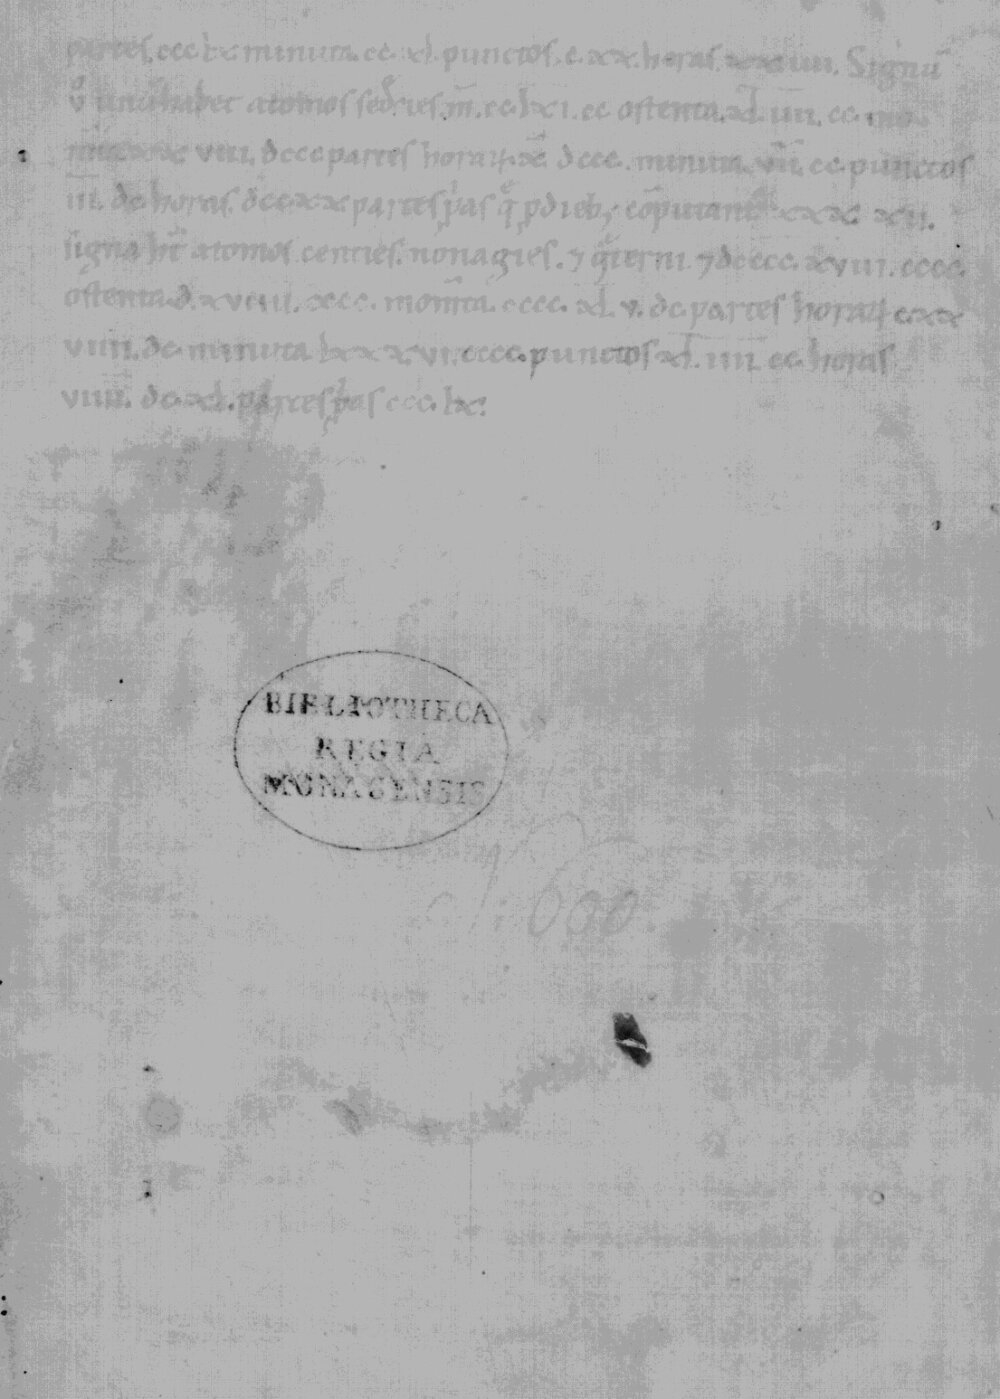 partes. ccc lx minuta. cc xl. punctos. c xx. horas. xx iiii. Signū
v̊ unū habet atomos sedcies m̄. cc. lx i. cc ostenta. xl. iiii. cc. mo
viii. dccc partes horaꝝ dccc. minuta. vii. cc. punctos
iii. dc horas. dcc xx partes p̄as q̄ p dieb; cōputant xii.
signa hn̄t atomos centies. nonagies. ⁊ q̊terni. ⁊ dcccc. xviii. cccc.
ostenta. d. xviiii. cccc. mom̄ta. cccc. xl. v. dc partes horaꝝ c xx
viiii. dc minuta lxxxvi. cccc. punctos xl. iiii. cc horas
viiii. dc. xl. partes p̄as ccc. lx.
BIBLIOTHECA
REGIA
MONACENSIS
cl: 600.